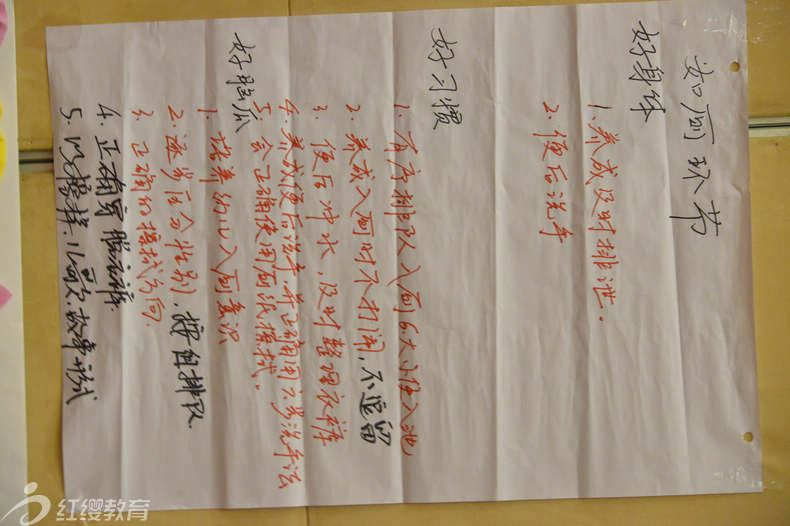 如厕环节
好身体
1. 养成及时排泄。
2. 便后洗手
好习惯
1. 有序排队入厕 大小便入池
2. 养成入厕时不打闹，不逗留
3. 便后冲水，及时整理衣裤
4. 养成便后洗手，并正确用六步洗手法
5 会正确使用厕纸擦拭。
好脑瓜
1. 培养幼儿入厕意识
2. 逐步区分性别，按组排队
3. 正确的擦拭方向
4. 正确穿脱衣裤
5. 以榜样、儿歌、故事形式
红缨教育